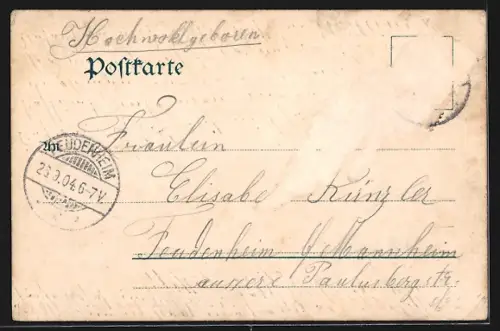 Hochwohlgeboren
Postkarte
An
FEUDENHEIM
23.9.04.6-7V.
Fräulein
Elisabe Künzler
Feudenheim b/ Mannheim
äussere Paulusbergstr.